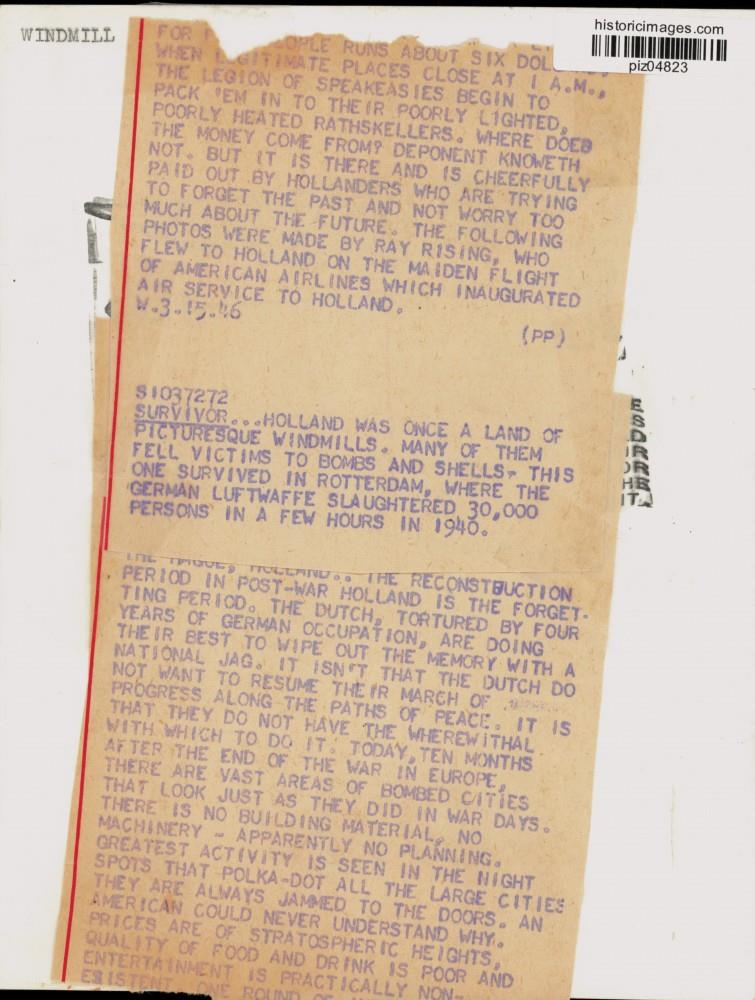 historicimages.com
piz04823
WINDMILL
FOR RUNS ABOUT SIX
WHEN LEGITIMATE PLACES CLOSE AT 1 A.M.,
THE LEGION OF SPEAKEASIES BEGIN TO
PACK 'EM IN TO THEIR POORLY LIGHTED,
POORLY HEATED RATHSKELLERS. WHERE DOES
THE MONEY COME FROM? DEPONENT KNOWETH
NOT. BUT IT IS THERE AND IS CHEERFULLY
PAID OUT BY HOLLANDERS WHO ARE TRYING
TO FORGET THE PAST AND NOT WORRY TOO
MUCH ABOUT THE FUTURE. THE FOLLOWING
PHOTOS WERE MADE BY RAY RISING, WHO
FLEW TO HOLLAND ON THE MAIDEN FLIGHT
OF AMERICAN AIRLINES WHICH INAUGURATED
AIR SERVICE TO HOLLAND.
W.3.15.46
(PP)
S1037272
SURVIVOR...HOLLAND WAS ONCE A LAND OF
PICTURESQUE WINDMILLS. MANY OF THEM
FELL VICTIMS TO BOMBS AND SHELLS- THIS
ONE SURVIVED IN ROTTERDAM, WHERE THE
GERMAN LUFTWAFFE SLAUGHTERED 30,000
PERSONS IN A FEW HOURS IN 1940.
THE HAGUE, HOLLAND.. THE RECONSTRUCTION
PERIOD IN POST-WAR HOLLAND IS THE FORGET-
TING PERIOD. THE DUTCH, TORTURED BY FOUR
YEARS OF GERMAN OCCUPATION, ARE DOING
THEIR BEST TO WIPE OUT THE MEMORY WITH A
NATIONAL JAG. IT ISN'T THAT THE DUTCH DO
NOT WANT TO RESUME THEIR MARCH OF
PROGRESS ALONG THE PATHS OF PEACE. IT IS
THAT THEY DO NOT HAVE THE WHEREWITHAL
WITH WHICH TO DO IT. TODAY, TEN MONTHS
AFTER THE END OF THE WAR IN EUROPE,
THERE ARE VAST AREAS OF BOMBED CITIES
THAT LOOK JUST AS THEY DID IN WAR DAYS.
THERE IS NO BUILDING MATERIAL, NO
MACHINERY - APPARENTLY NO PLANNING.
GREATEST ACTIVITY IS SEEN IN THE NIGHT
SPOTS THAT POLKA-DOT ALL THE LARGE CITIES
THEY ARE ALWAYS JAMMED TO THE DOORS. AN
AMERICAN COULD NEVER UNDERSTAND WHY.
PRICES ARE OF STRATOSPHERIC HEIGHTS,
QUALITY OF FOOD AND DRINK IS POOR AND
ENTERTAINMENT IS PRACTICALLY NON-
ONE ROUND OF